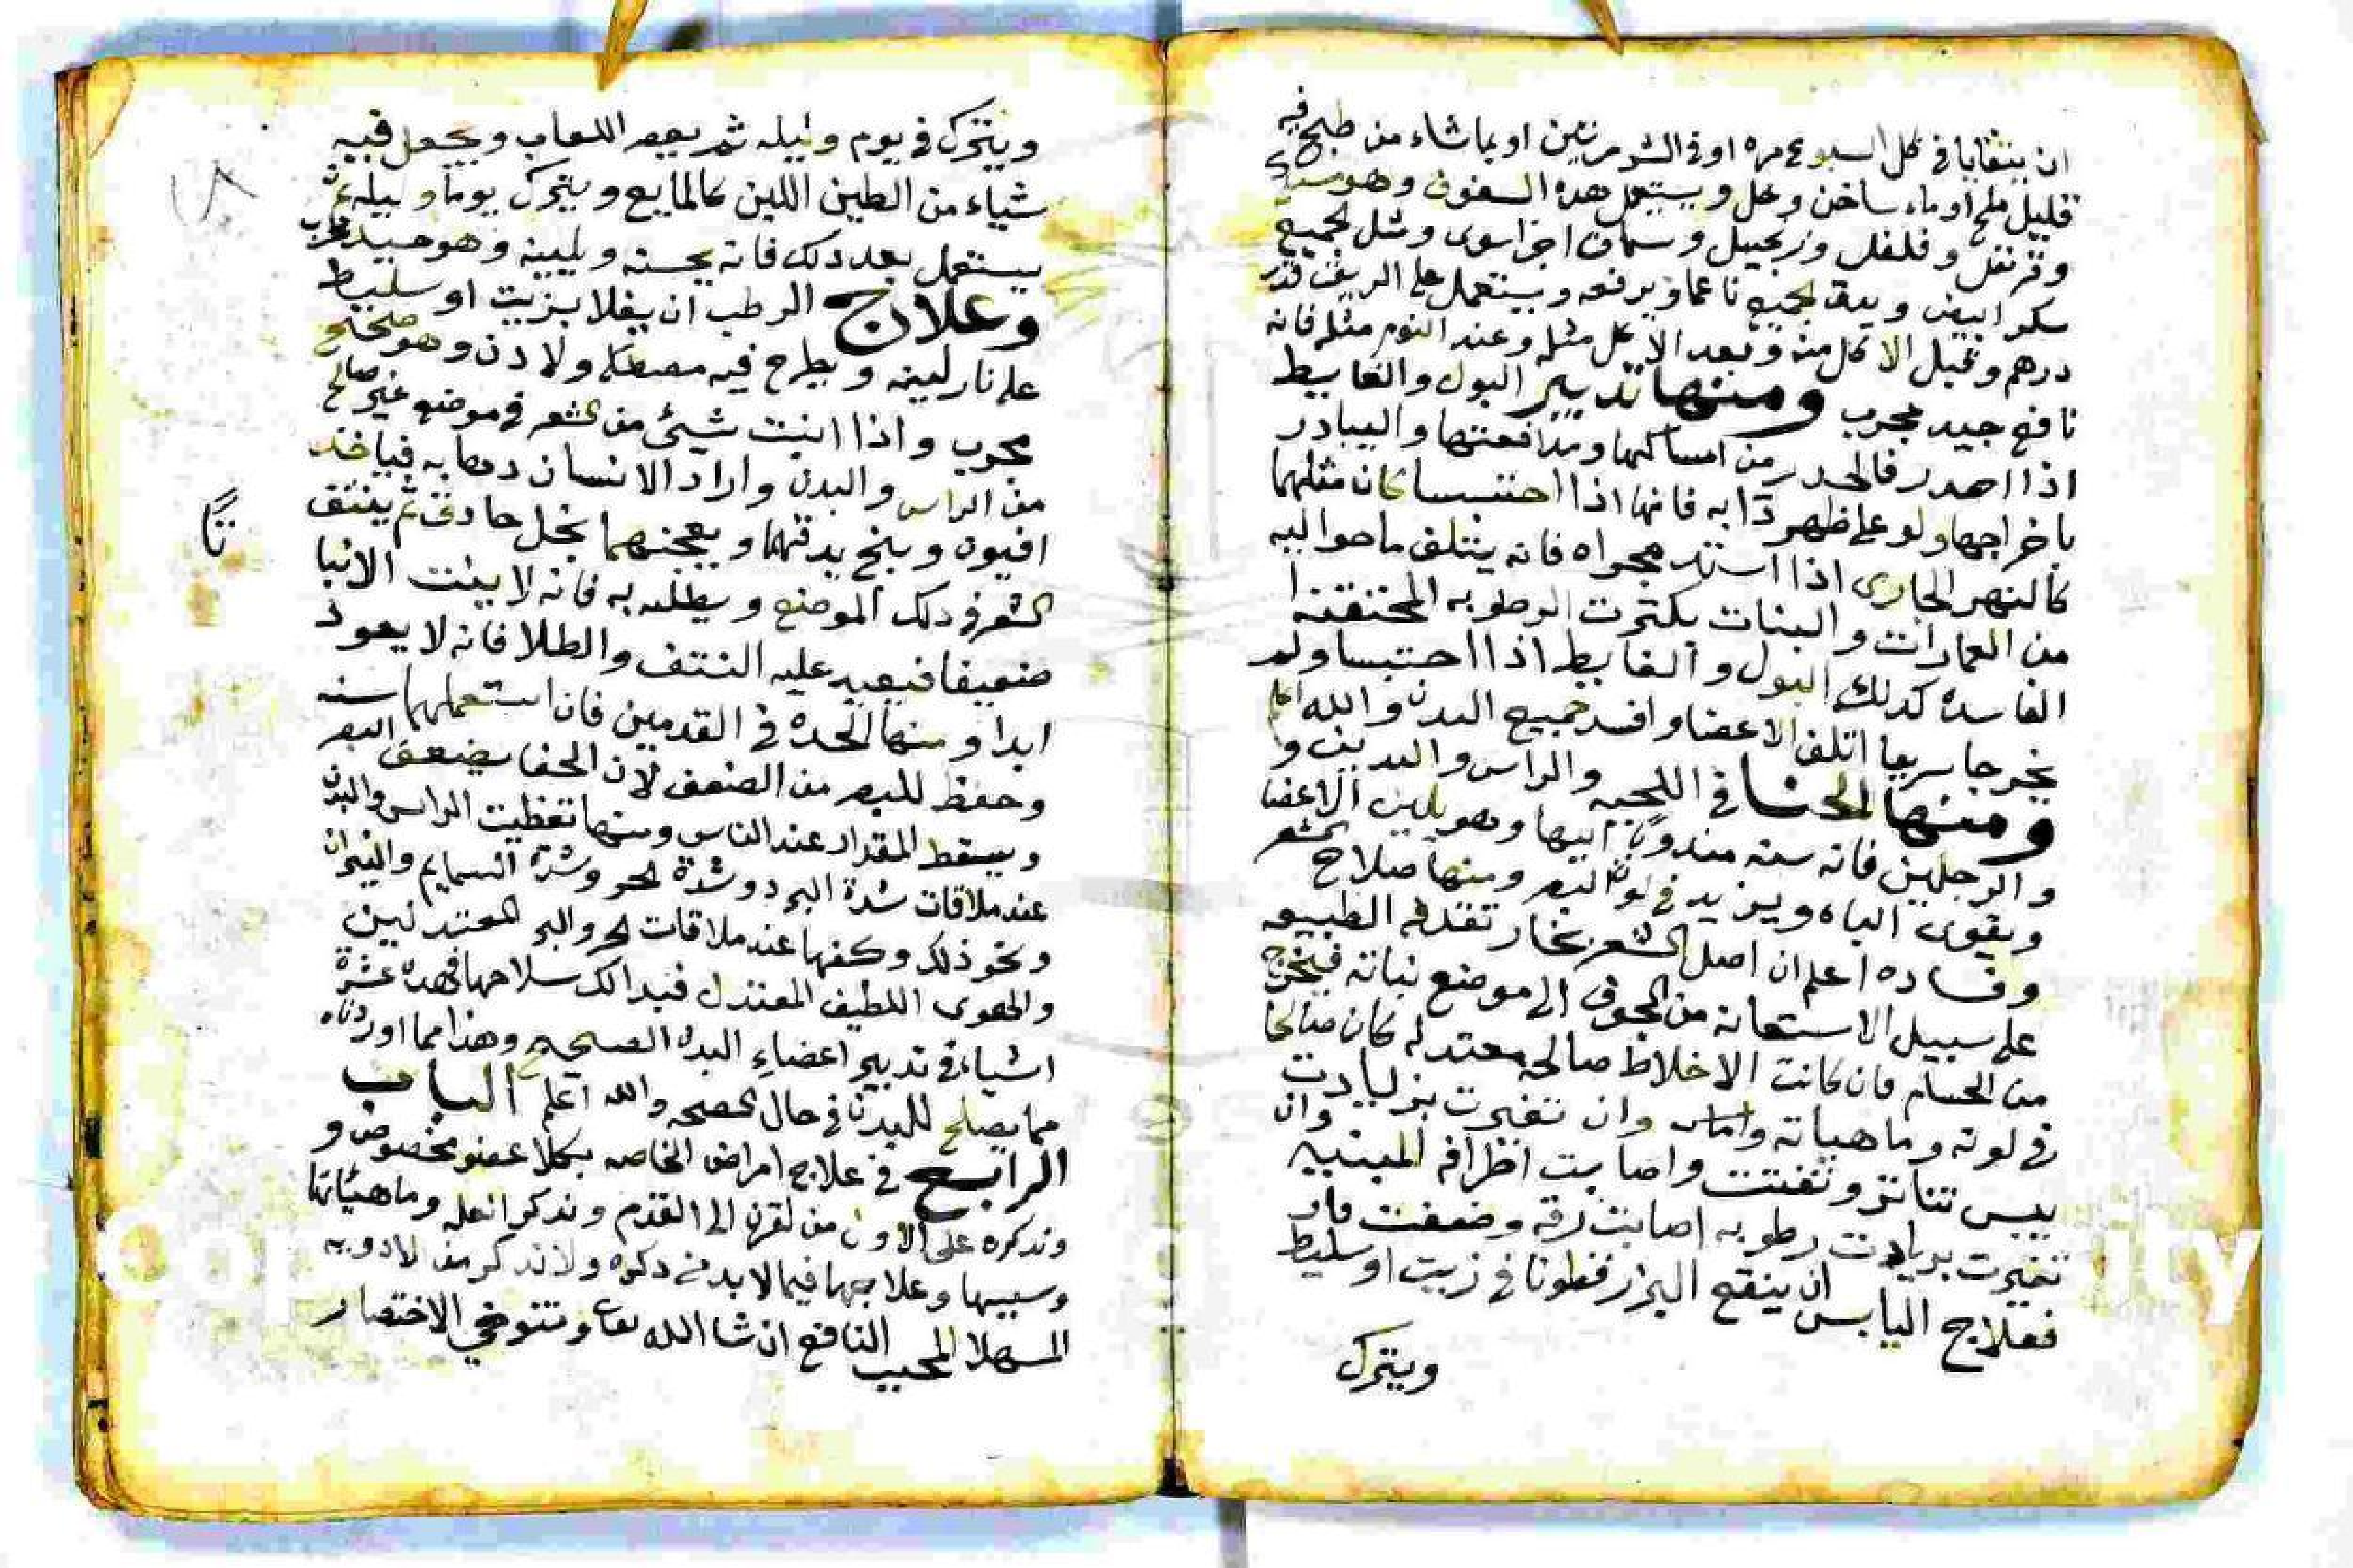 ان يتقايا في كل اسبوع مره او في الشهر مرتين او بما شاء من طبخ فيه
قليل ملح او ماء ساخن وعسل ويستعمل هذه السفوف وهو
وقرنفل وفلفل وزنجبيل وسماق اجزا سوى ومثل الجميع
سكر ابيض ويدق الجميع ناعما ويرفعه ويستعمل على الريق قدر
درهم وقبل الاكل منه وبعد الاكل مثله وعند النوم مثله فانه
نافع جيد مجرب ومنها تدبير البول والغايط
اذا احدر فالحدر من امساكها ومدافعتها واليبادر
باخراجها ولو على ظهر دابه فانها اذا احتبسا كان مثلهما
كالنهر الجارى اذا استد مجراه فانه يتلف ما حواليه
من العمارات والبنات بكثرت الرطوبه المحتقنه
الفاسده كدلك البول والغايط اذا احتبسا ولم
يخرجا سريعا اتلف الاعضا وافسد جميع البدن والله اعلم
ومنها الحنا في اللحيه والراس واليدين و
والرجلين فانه سنه مندوب اليها وهو يلين الاعضا
ويقوى الباه ويزيد في نور البصر ومنها صلاح الشعر
وفساده اعلم ان اصل الشعر بخار تقدفه الطبيعه
على سبيل الاستعانه من الجوف الى موضع نباته فيخرج
من المسام فان كانت الاخلاط صالحه معتدله كان صالحا
في لونه وماهياته وان تغيرت بزيادت
يبس تناثر وتفتت واصابت اطرافه وان
تغيرت بزيادت رطوبه اصابت رقه وضعفت
فعلاج اليابس ان ينقع البزر قطونا في زيت او سليط
ويترك
ويترك في يوم وليله ثم يعصر اللعاب ويجعل فيه
شياء من الطين اللين كالمايع ويترك يوما وليله ثم
يستعمل بعد دلك فانه يحسنه ويلينه وهو جيد مجرب
وعلاج الرطب ان يغلا بزيت او سليط
على نار لينه ويطرح فيه مصطكى ولادن وهو صحيح
مجرب واذا انبت شيئ من الشعر في موضع غير صالح
من الراس والبدن واراد الانسان دهابه فياخد
افيون وبنج يدقهما ويعجنهما بخل حادق ثم ينتف
الشعر في دلك الموضع ويطليه به فانه لا ينبت الا نباتا
ضعيفا فيعيد عليه النتف والطلا فانه لا يعود
ابدا ومنها الحده في القدمين فان استعملهما سنه
وحفظ للبصر من الضعف لان الحفا يضعف البصر
ويسقط المقدار عند الناس ومنها تغظيت الراس والبدن
عند ملاقات شدة البرد وشدة الحر وشدة السمايم والنيران
ونحو ذلك وكفها عند ملاقات الحر والبر المعتدلين
والهوى اللطيف المعتدل فبدالك سلامها فهده عشرة
اشياء في تدبير اعضاء البدن الصحيحه وهذا مما اوردناه
مما يصلح للبدن في حال الصحه والله اعلم الباب
الرابع في علاج امراض الخاصه بكلا عضو مخصوص و
وندكره على الاول من لقرن الى القدم وندكر العله وماهياتها
وسببها وعلاجها فيما لابد من دكره ولا ندكر من الادويه
المسهلا المجيب النافع ان شا الله تعا ونتوخي الاختصار